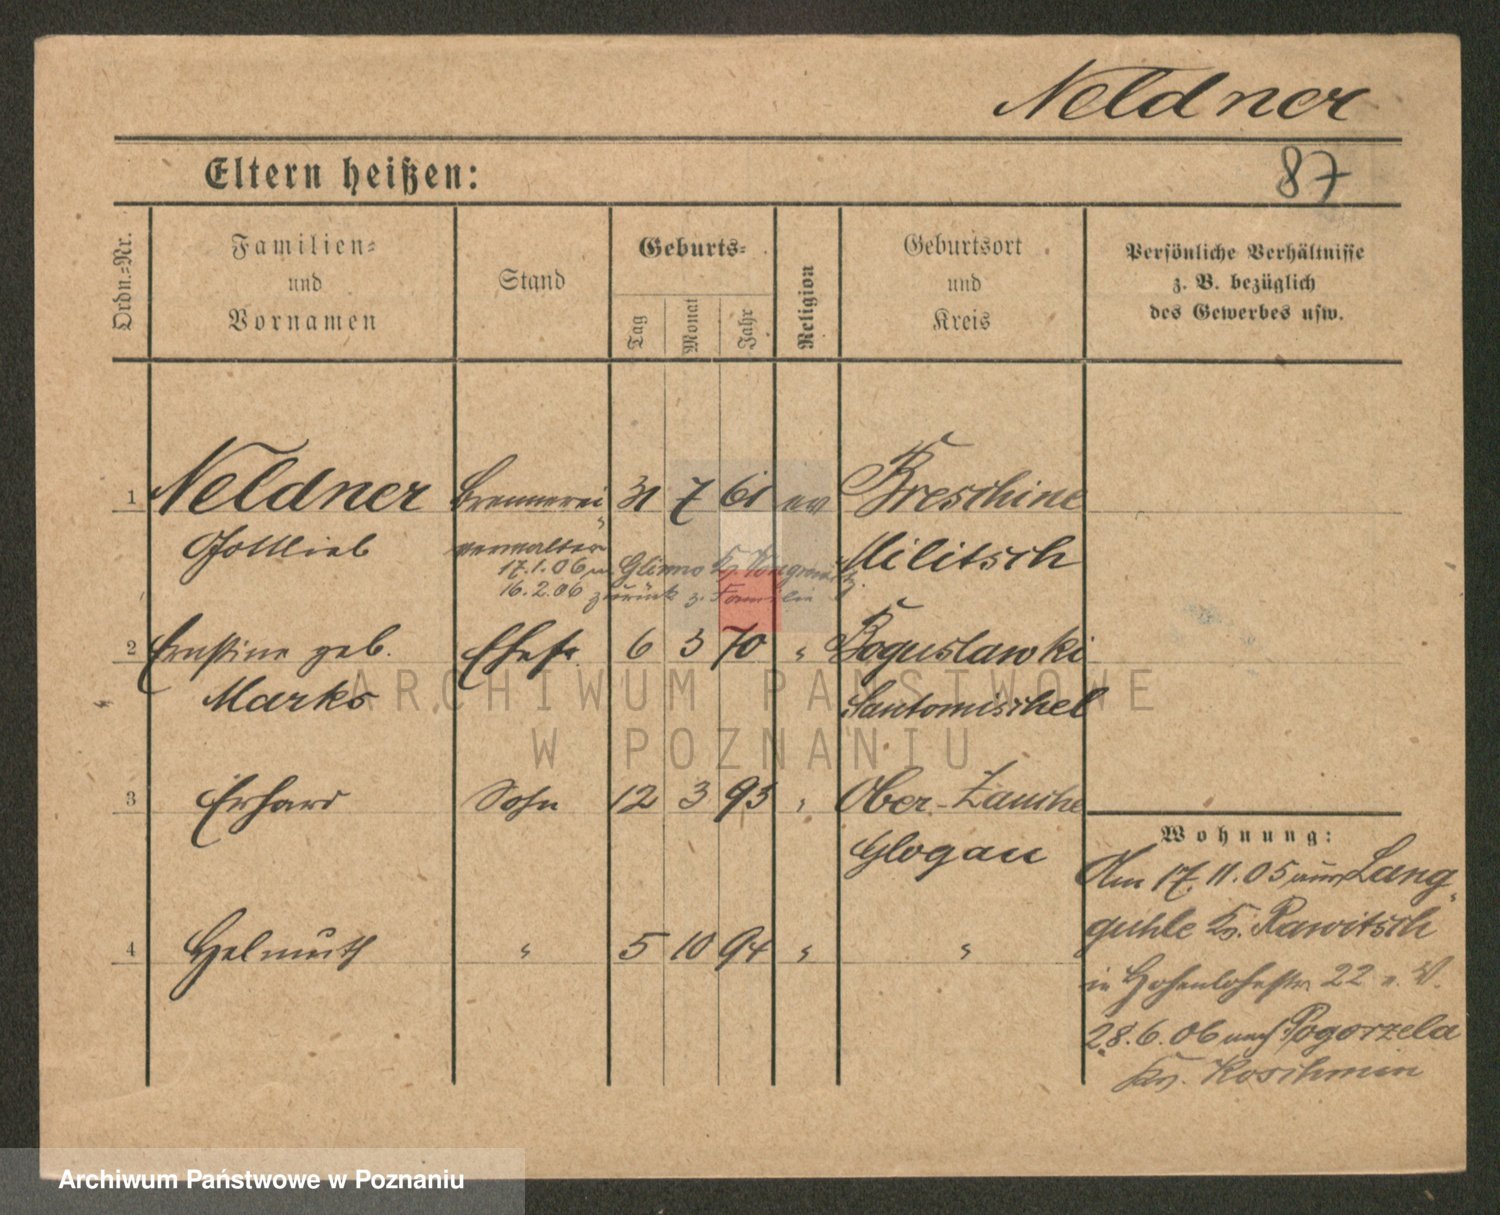 Neldner
87
Eltern heißen:
Ordn.-Nr.
Familien-
und
Vornamen
Stand
Geburts-
Tag
Monat
Jahr
Religion
Geburtsort
und
Kreis
Persönliche Verhältnisse
z. B. bezüglich
des Gewerbes usw.
1 Neldner Brennerei 31 7 61 ev Breschine
Gottlieb verwalter Militsch
17.1.06 n. Glinno Kr.
16.2.06 zurück z. Familie
2 Ernstine geb. Ehefr. 6 3 70 " Boguslawki
Marks Santomischel
ARCHIWUM PAŃSTWOWE
W POZNANIU
3 Erhard Sohn 12 3 93 " Ober-Zauche
Glogau
4 Helmuth " 5 10 94 " "
Wohnung:
Am 17.11.05 aus Lang-
guhle Kr. Rawitsch
in Hohenlohestr. 22
28.6.06 nach Pogorzela
Kr. Koschmin
Archiwum Państwowe w Poznaniu